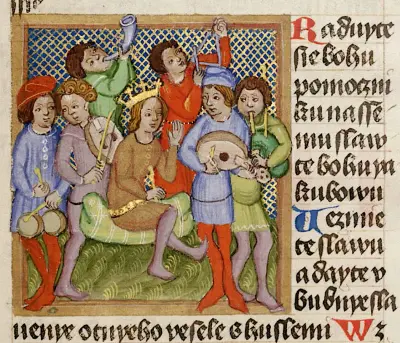 Raduyte
sie bohu
pomoczni
ku nasse
mu slaw
te bohu ya
kubowu
Wezmie
te slawu
a dayte v
bubuyessla
uenye otuyeho vesele s huslemi Wz